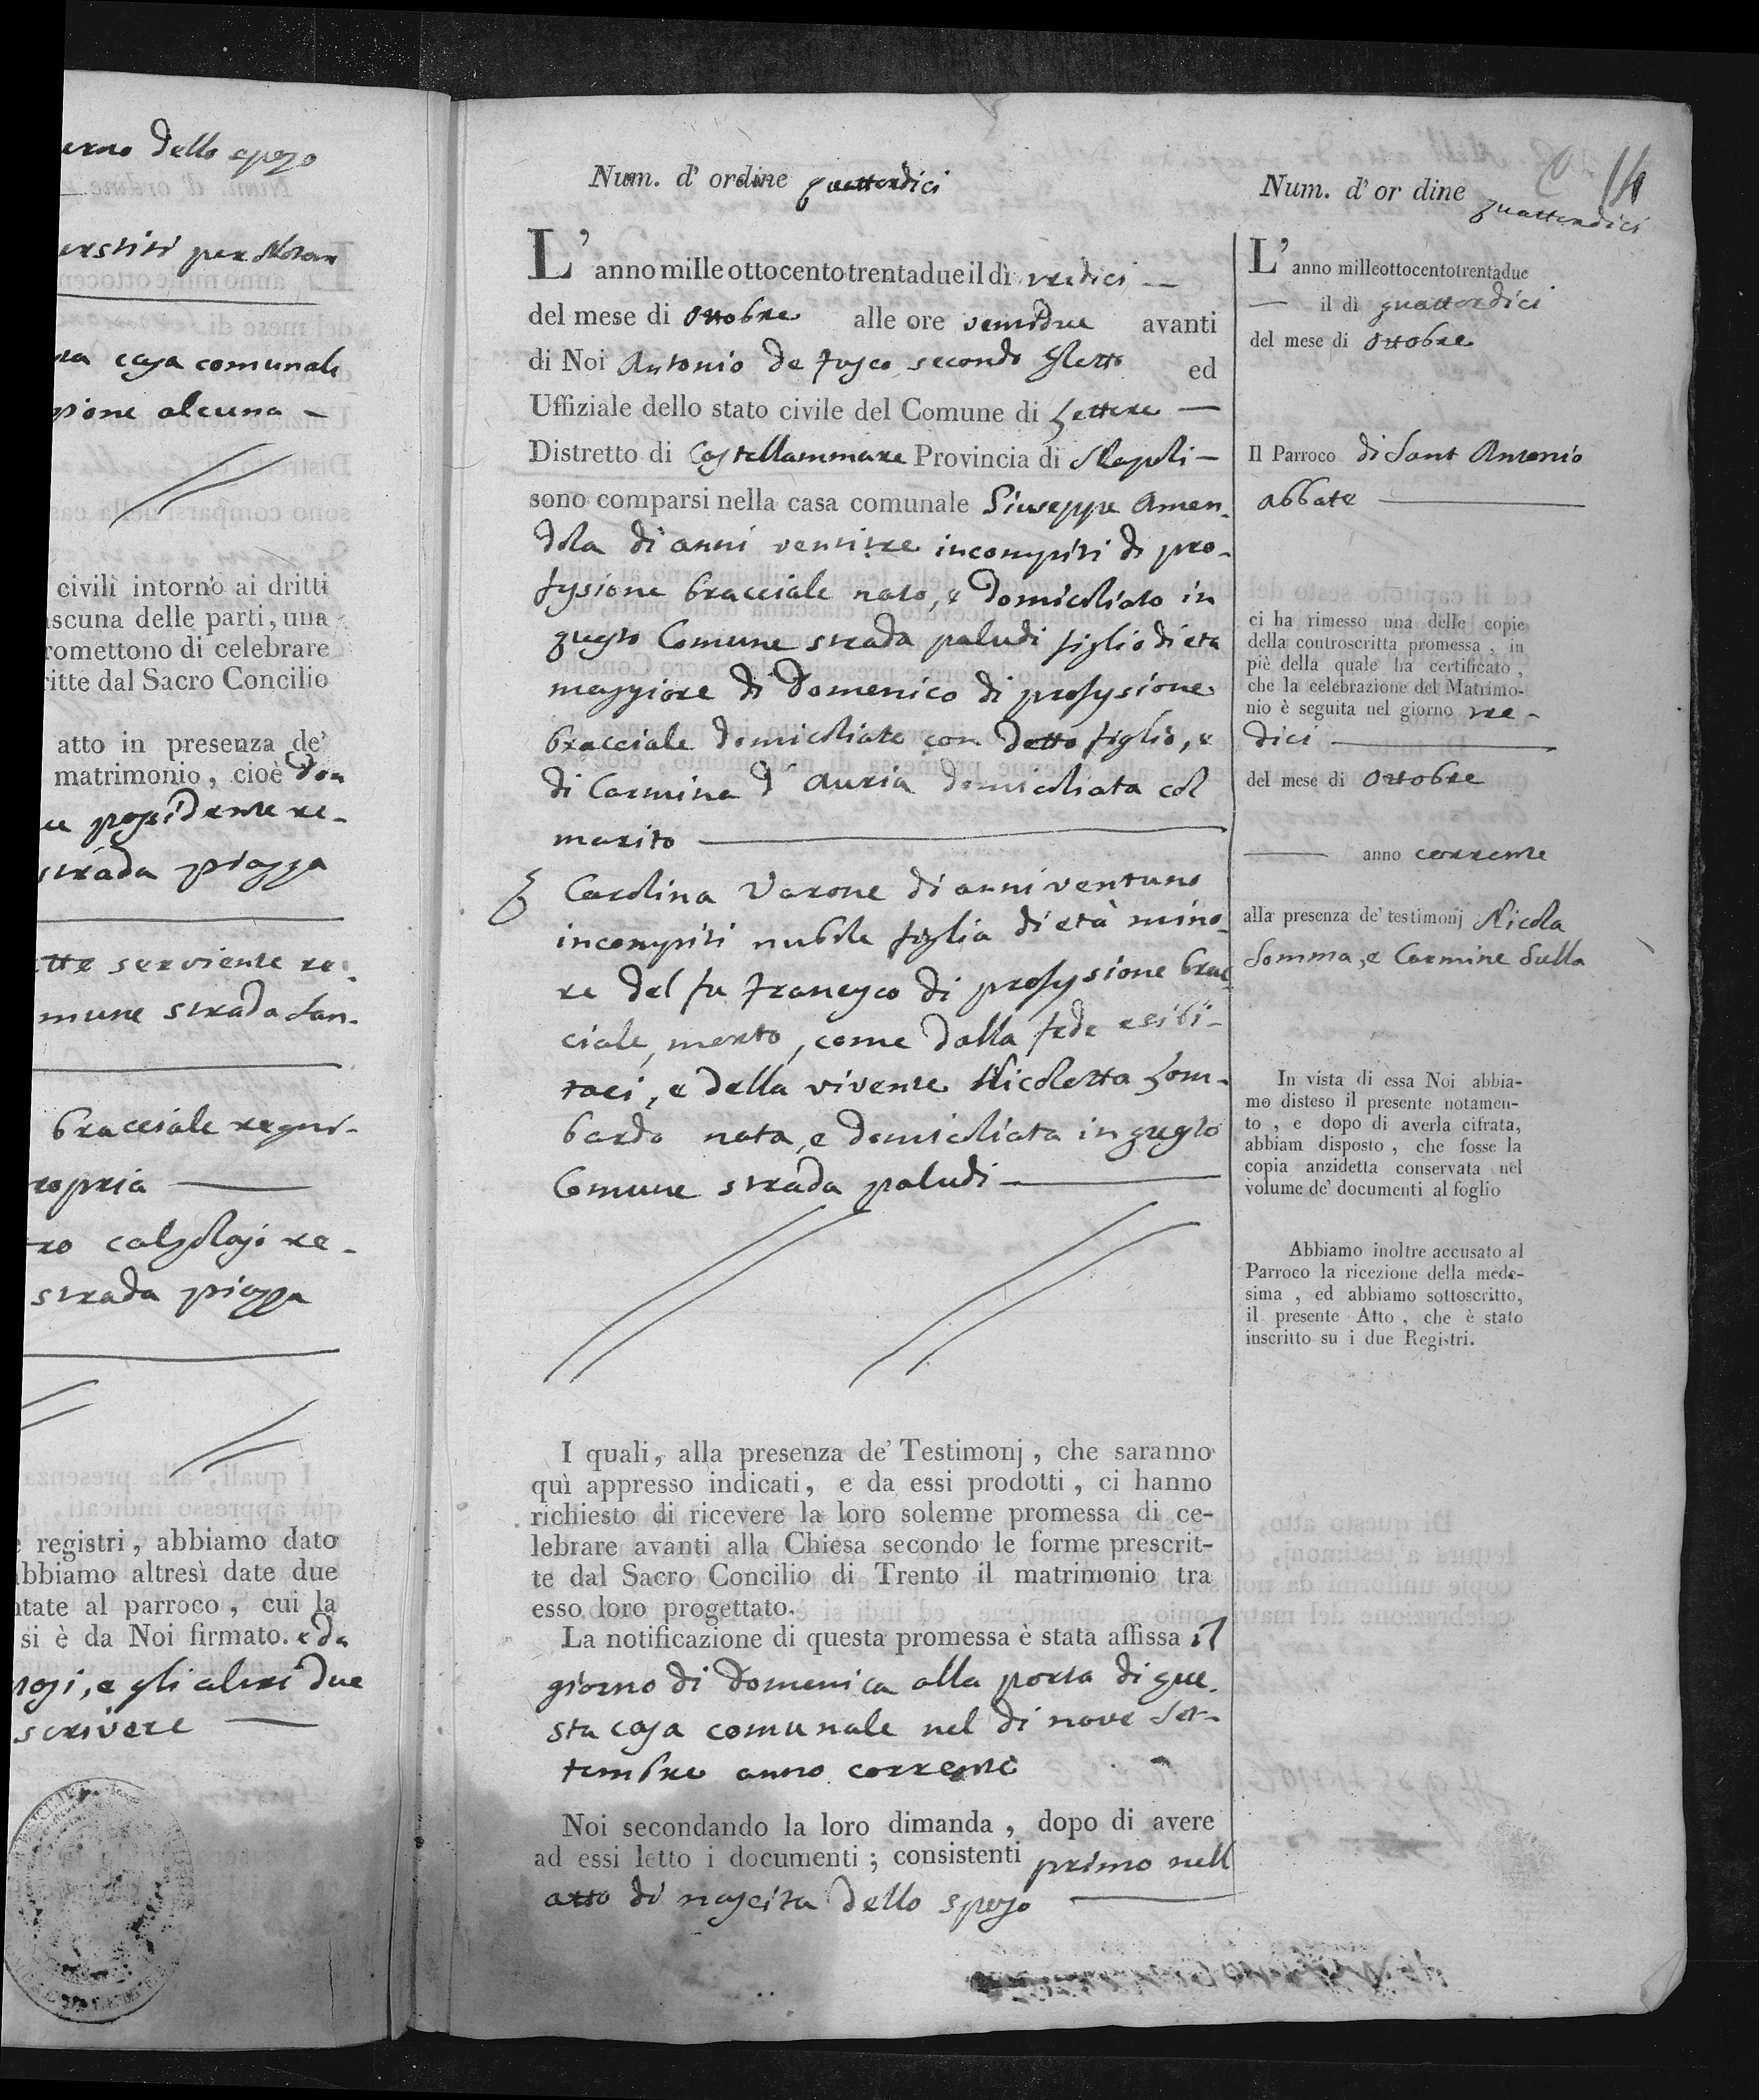 erno dello sposo
erstiti per Notar
na casa comunale
zione alcuna –
civili intorno ai dritti
ascuna delle parti, una
romettono di celebrare
ritte dal Sacro Concilio
atto in presenza de'
matrimonio, cioè don
possidente re-
strada piazza
serviente re-
mune strada San-
bracciale regni-
ropria
ro calzolajo re-
strada piazza
registri, abbiamo dato
abbiamo altresì date due
ntate al parroco, cui la
si è da Noi firmato. e da
e gli altri due
scrivere
Num. d' ordine quattordici
L' anno mille ottocento trentadue il dì tredici —
del mese di Ottobre alle ore ventidue avanti
di Noi Antonio de Fusco secondo Eletto ed
Uffiziale dello stato civile del Comune di Lettere —
Distretto di Castellammare Provincia di Napoli —
sono comparsi nella casa comunale Giuseppe Amen-
dola di anni ventitre incompiti di pro-
fessione bracciale nato, e domiciliato in
questo Comune strada paludi figlio di età
maggiore di Domenico di professione
bracciale domiciliato con detto figlio, e
di Carmina d' Auria domiciliata col
marito
E Carolina Varone di anni ventuno
incompiti nubile figlia di età mino-
re del fu Francesco di professione brac-
ciale, morto, come dalla fede esibi-
taci, e della vivente Nicoletta Lom-
bardo nata, e domiciliata in questo
Comune strada paludi
I quali, alla presenza de' Testimonj, che saranno
quì appresso indicati, e da essi prodotti, ci hanno
richiesto di ricevere la loro solenne promessa di ce-
lebrare avanti alla Chiesa secondo le forme prescrit-
te dal Sacro Concilio di Trento il matrimonio tra
esso loro progettato.
La notificazione di questa promessa è stata affissa il
giorno di Domenica alla porta di que-
sta casa comunale nel di nove Set-
tembre anno corrente
Noi secondando la loro dimanda, dopo di avere
ad essi letto i documenti; consistenti primo nell
atto di nascita dello sposo
14
Num. d' or dine quattordici
L' anno milleottocentotrentadue
— il dì quattordici
del mese di Ottobre
Il Parroco di Sant Antonio
abbate
ci ha rimesso una delle copie
della controscritta promessa, in
piè della quale ha certificato,
che la celebrazione del Matrimo-
nio è seguita nel giorno tre-
dici
del mese di Ottobre
— anno corrente
alla presenza de' testimonj Nicola
Somma, e Carmine Sulla
In vista di essa Noi abbia-
mo disteso il presente notamen-
to, e dopo di averla cifrata,
abbiam disposto, che fosse la
copia anzidetta conservata nel
volume de' documenti al foglio
Abbiamo inoltre accusato al
Parroco la ricezione della mede-
sima, ed abbiamo sottoscritto,
il presente Atto, che è stato
inscritto su i due Registri.